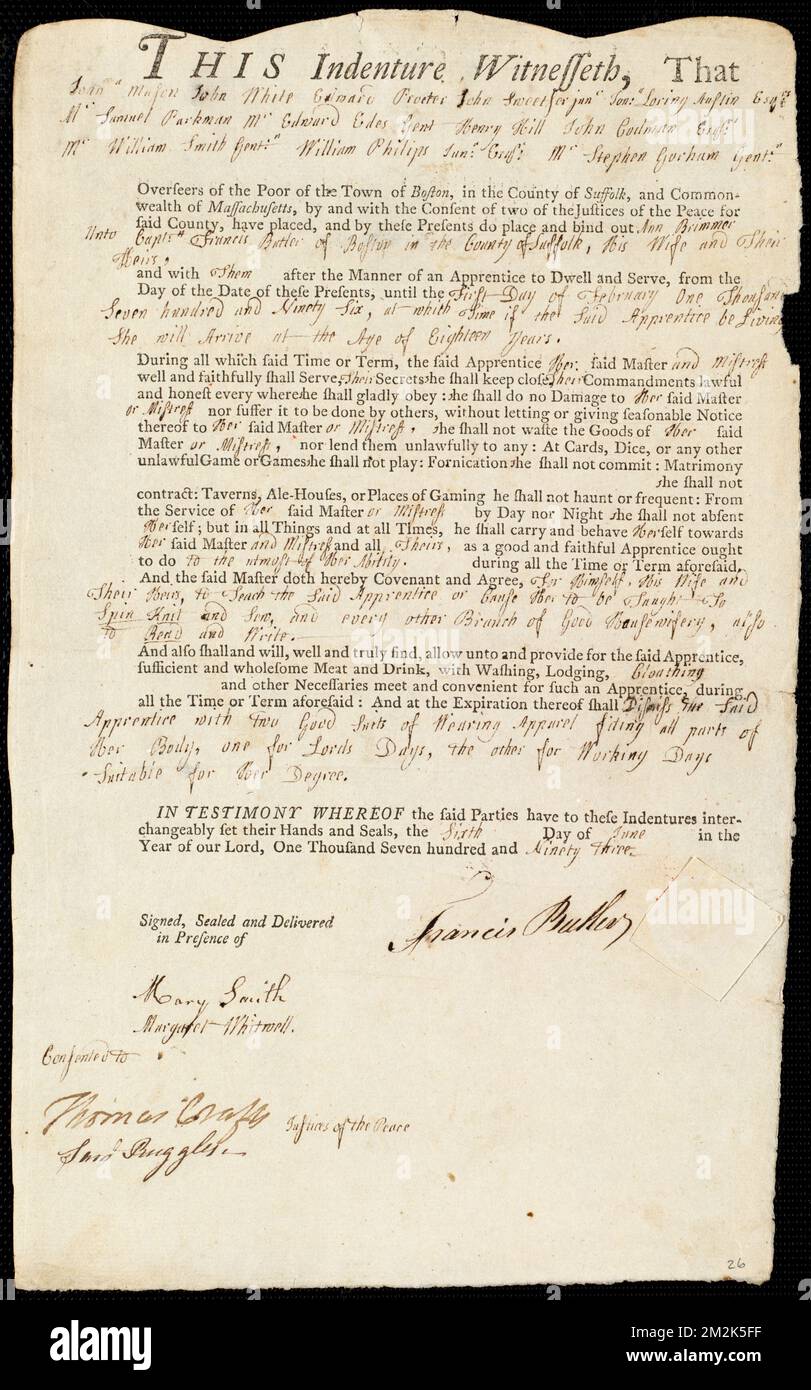 THIS Indenture Witneſſeth, That
Jonan Mason John White Edward Procter John Sweetser junr Jona Loring Austin Esqrs
Mr Samuel Parkman Mr Edward Edes Gent Henry Hill John Codman Esqrs
Mr William Smith Gentn William Philips Junr Esqr Mr Stephen Gorham Gentn
Overſeers of the Poor of the Town of Boſton, in the County of Suffolk, and Common-
wealth of Maſſachuſetts, by and with the Conſent of two of the Juſtices of the Peace for
ſaid County, have placed, and by theſe Preſents do place and bind out Ann Brimmer
Unto Captn Francis Butler of Boſton in the County of Suffolk, His Wife and Their
Heirs,
and with Them after the Manner of an Apprentice to Dwell and Serve, from the
Day of the Date of theſe Preſents, until the First Day of February One Thouſand
Seven hundred and Ninety Six, at which Time if the Said Apprentice be Living
She will Arrive at the Age of Eighteen Years.
During all which ſaid Time or Term, the ſaid Apprentice Her ſaid Maſter and Miſtreſs
well and faithfully ſhall Serve, Their Secrets she ſhall keep cloſe Their Commandments lawful
and honeſt every where she ſhall gladly obey : she ſhall do no Damage to Her ſaid Maſter
or Miſtreſs nor ſuffer it to be done by others, without letting or giving ſeaſonable Notice
thereof to Her ſaid Maſter or Miſtreſs, she ſhall not waſte the Goods of Her ſaid
Maſter or Miſtreſs, nor lend them unlawfully to any : At Cards, Dice, or any other
unlawful Game or Games she ſhall not play : Fornication she ſhall not commit : Matrimony
she ſhall not
contract : Taverns, Ale-Houſes, or Places of Gaming he ſhall not haunt or frequent : From
the Service of Her ſaid Maſter or Miſtreſs by Day nor Night she ſhall not abſent
Herſelf ; but in all Things and at all Times, he ſhall carry and behave Herſelf towards
Her ſaid Maſter and Miſtreſs and all Theirs, as a good and faithful Apprentice ought
to do to the utmost of Her Ability. during all the Time or Term aforeſaid.
And the ſaid Maſter doth hereby Covenant and Agree, For Himſelf, His Wife and
Their Heirs, to Teach the Said Apprentice or Cauſe Her to be Taught To
Spin Knit and Sew, and every other Branch of Good Houſewifery, alſo
to Read and Write.
And alſo ſhall and will, well and truly find, allow unto and provide for the ſaid Apprentice,
ſufficient and wholeſome Meat and Drink, with Waſhing, Lodging, Cloathing
and other Neceſſaries meet and convenient for ſuch an Apprentice, during
all the Time or Term aforeſaid : And at the Expiration thereof ſhall Diſmiſs the Said
Apprentice with two Good Suits of Wearing Apparel fiting all parts of
Her Body, one for Lords Days, the other for Working Days
Suitable for Her Degree.
IN TESTIMONY WHEREOF the ſaid Parties have to theſe Indentures inter-
changeably ſet their Hands and Seals, the Sixth Day of June in the
Year of our Lord, One Thouſand Seven hundred and Ninety Three
Signed, Sealed and Delivered
in Preſence of
Francis Butler
Mary Smith
Margaret Whitwell.
Conſented to
Thomas Crafts Juſtices of the Peace
Saml Ruggles
26
alamy
Image ID: 2M2K5FF
www.alamy.com